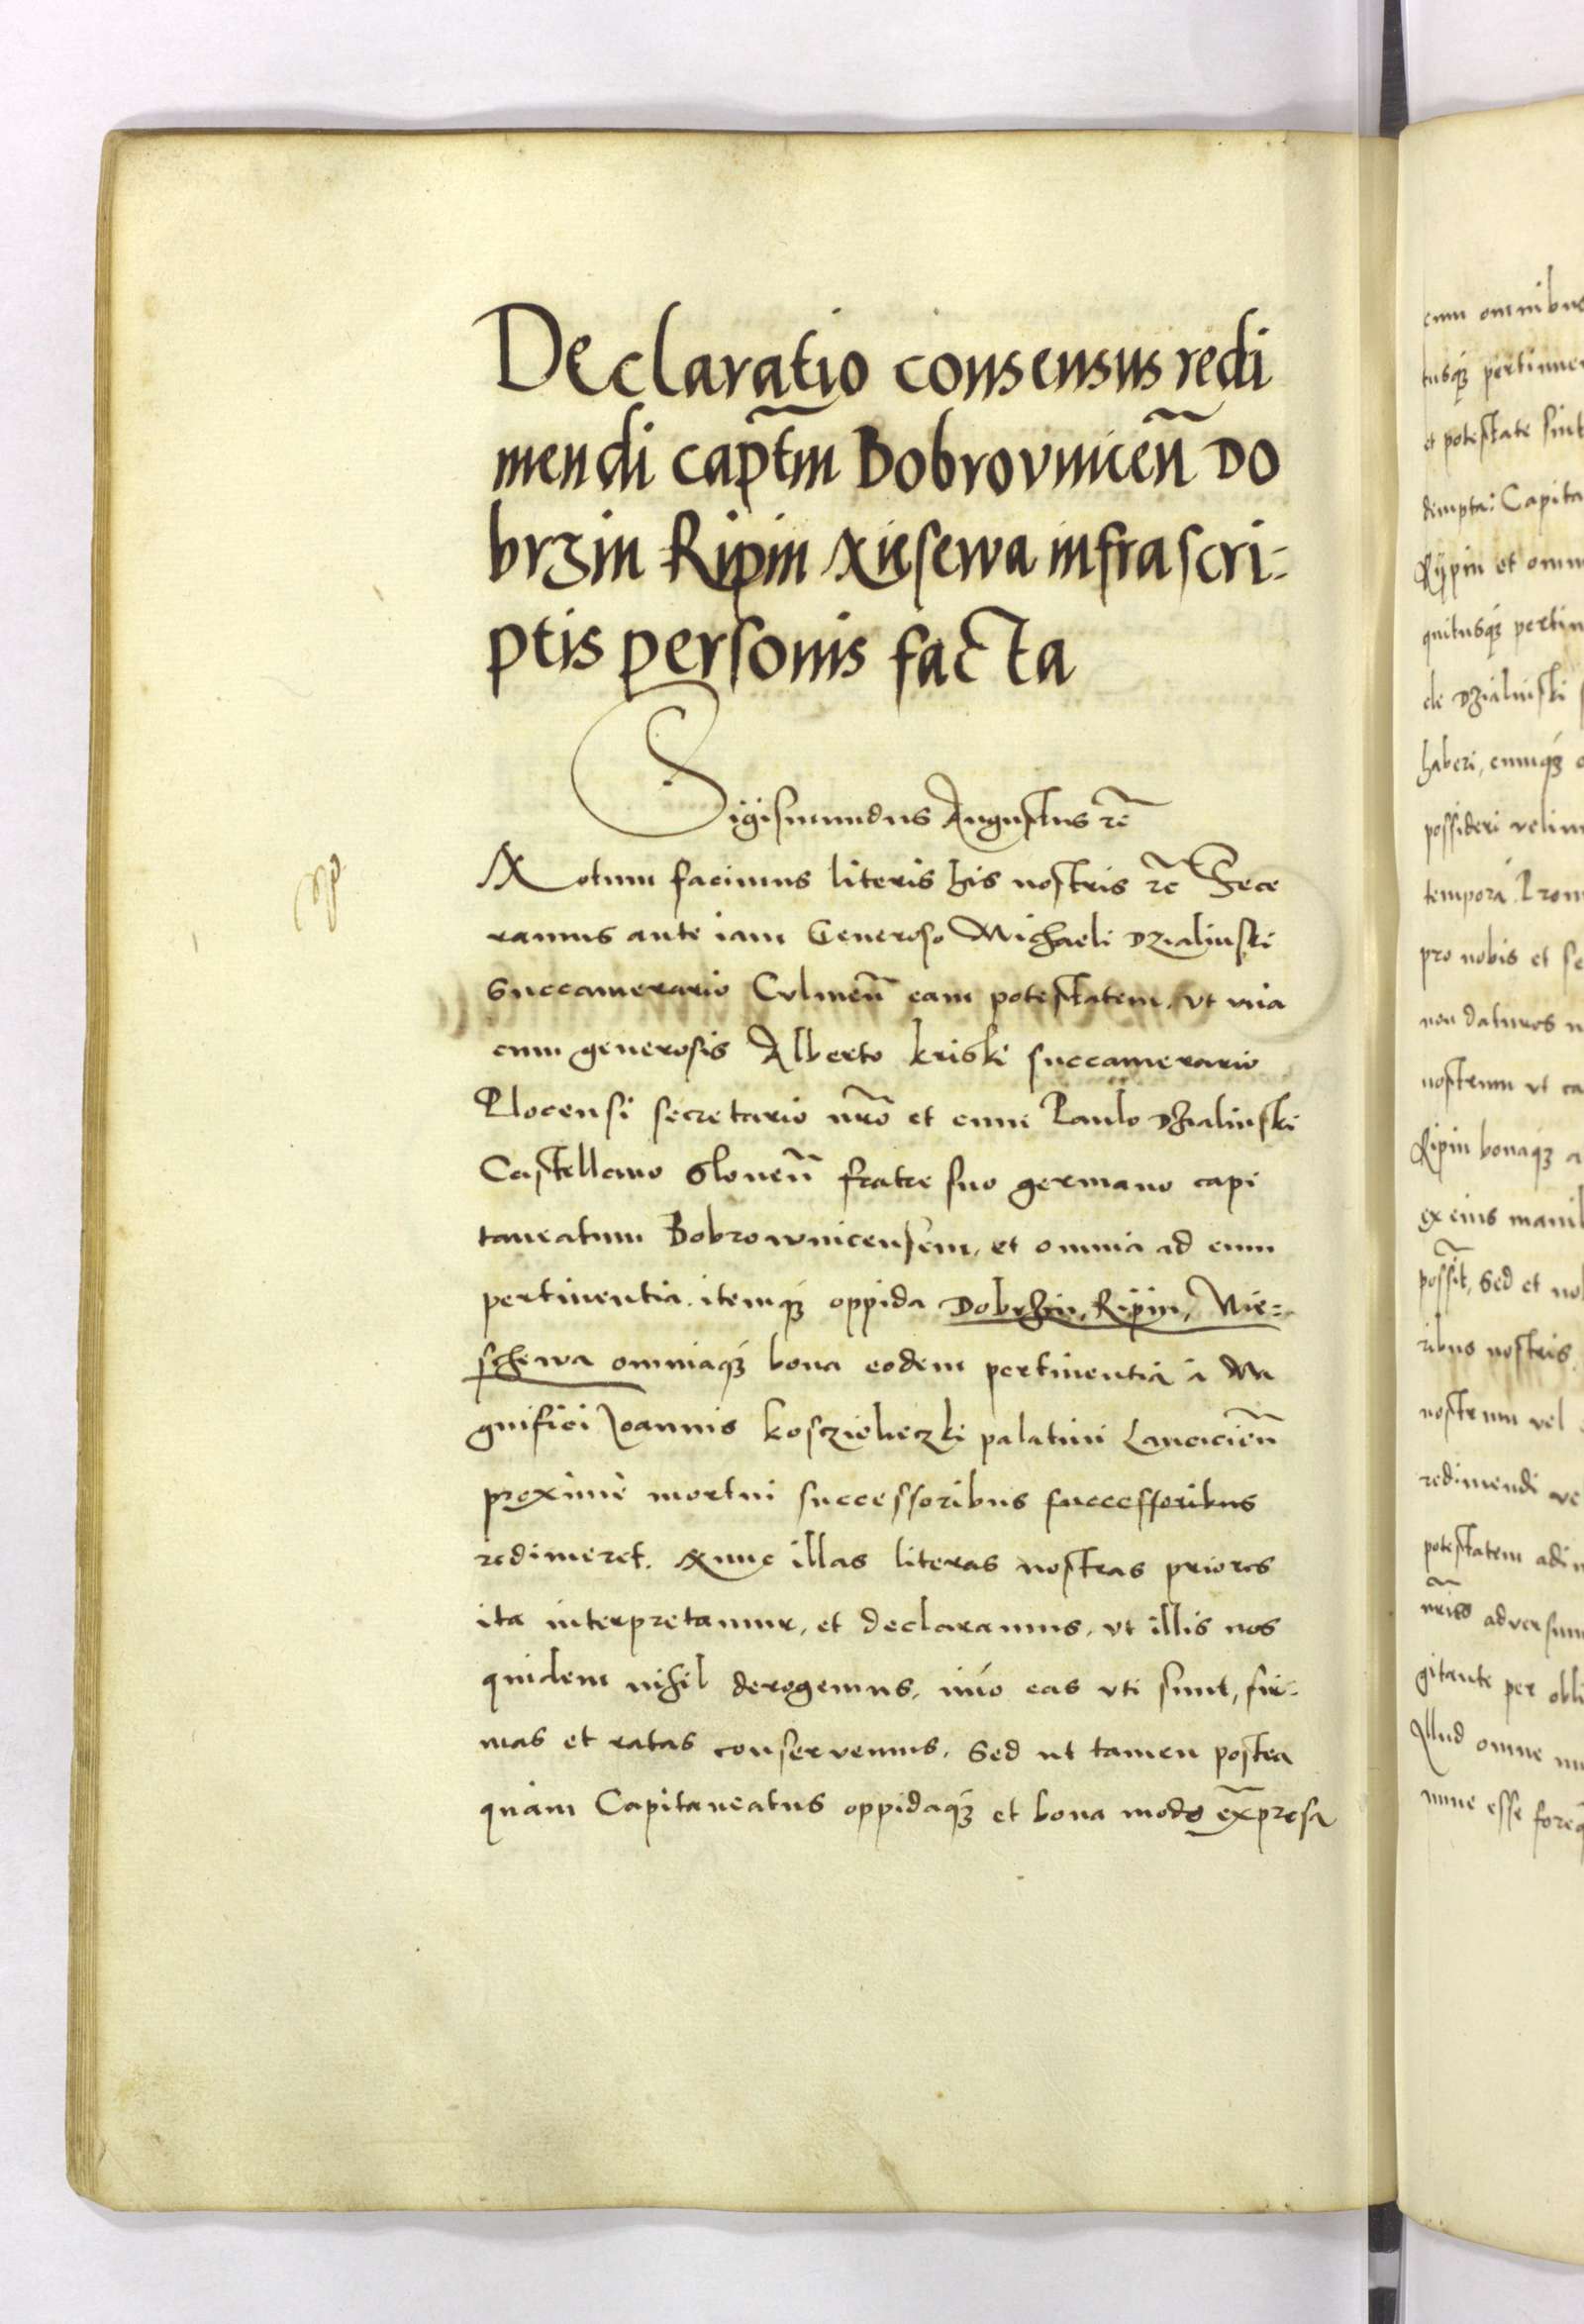 Declaratio consensus redi
mendi capt̃m Bobrovnicen̄ Do
brzin Ripin Niesewa infrascri-
ptis personis facta
Sigismundus Augustus rc̃
Notum facimus literis his nostris rc̃ Fece
ramus ante iam Generoso Michaeli Dzialinski
Succamerario Culmen̄ eam potestatem, vt vna
cum generosis Alberto kriski succamerario
Plocensi secretario nr̃o et cum Paulo Dzialinski
Castellano Slonen̄ fratre suo germano capi
taneatum Bobrownicensem, et omnia ad eum
pertinentia. itemq́ꝫ oppida Dobrzin, Ripin, Nie=
schewa omniaq́ꝫ bona eodem pertinentia à Ma
gnifici Joannis kosczieleczki palatini Lancicien̄
proximè mortui successoribus successoribus
redimeret. Nunc illas literas nostras priores
ita interpretamur, et declaramus, vt illis nos
quidem nihil derogemus, imò eas vti sunt, fir-
mas et ratas conservemus. Sed ut tamen postea
quàm Capitaneatus oppidaq́ꝫ et bona modo exp̄resa
cum omnibus
tusq́ꝫ pertinen
et potestate sint
dempta: Capita
Rypin et omn
quitusq́ꝫ pertin
de Dzialinski
haberi, eumq́ꝫ
possideri velim
tempora. Prom
pro nobis et se
non daturos
nostrum vt ca
Ripin bonaq́ꝫ a
ex eius manib
possit, Sed et no
ribus nostris
nostrum vel
redimendi ve
potestatem adi
nr̃iso adversum
gitante per obli
Illud omne
nunc esse foreq́